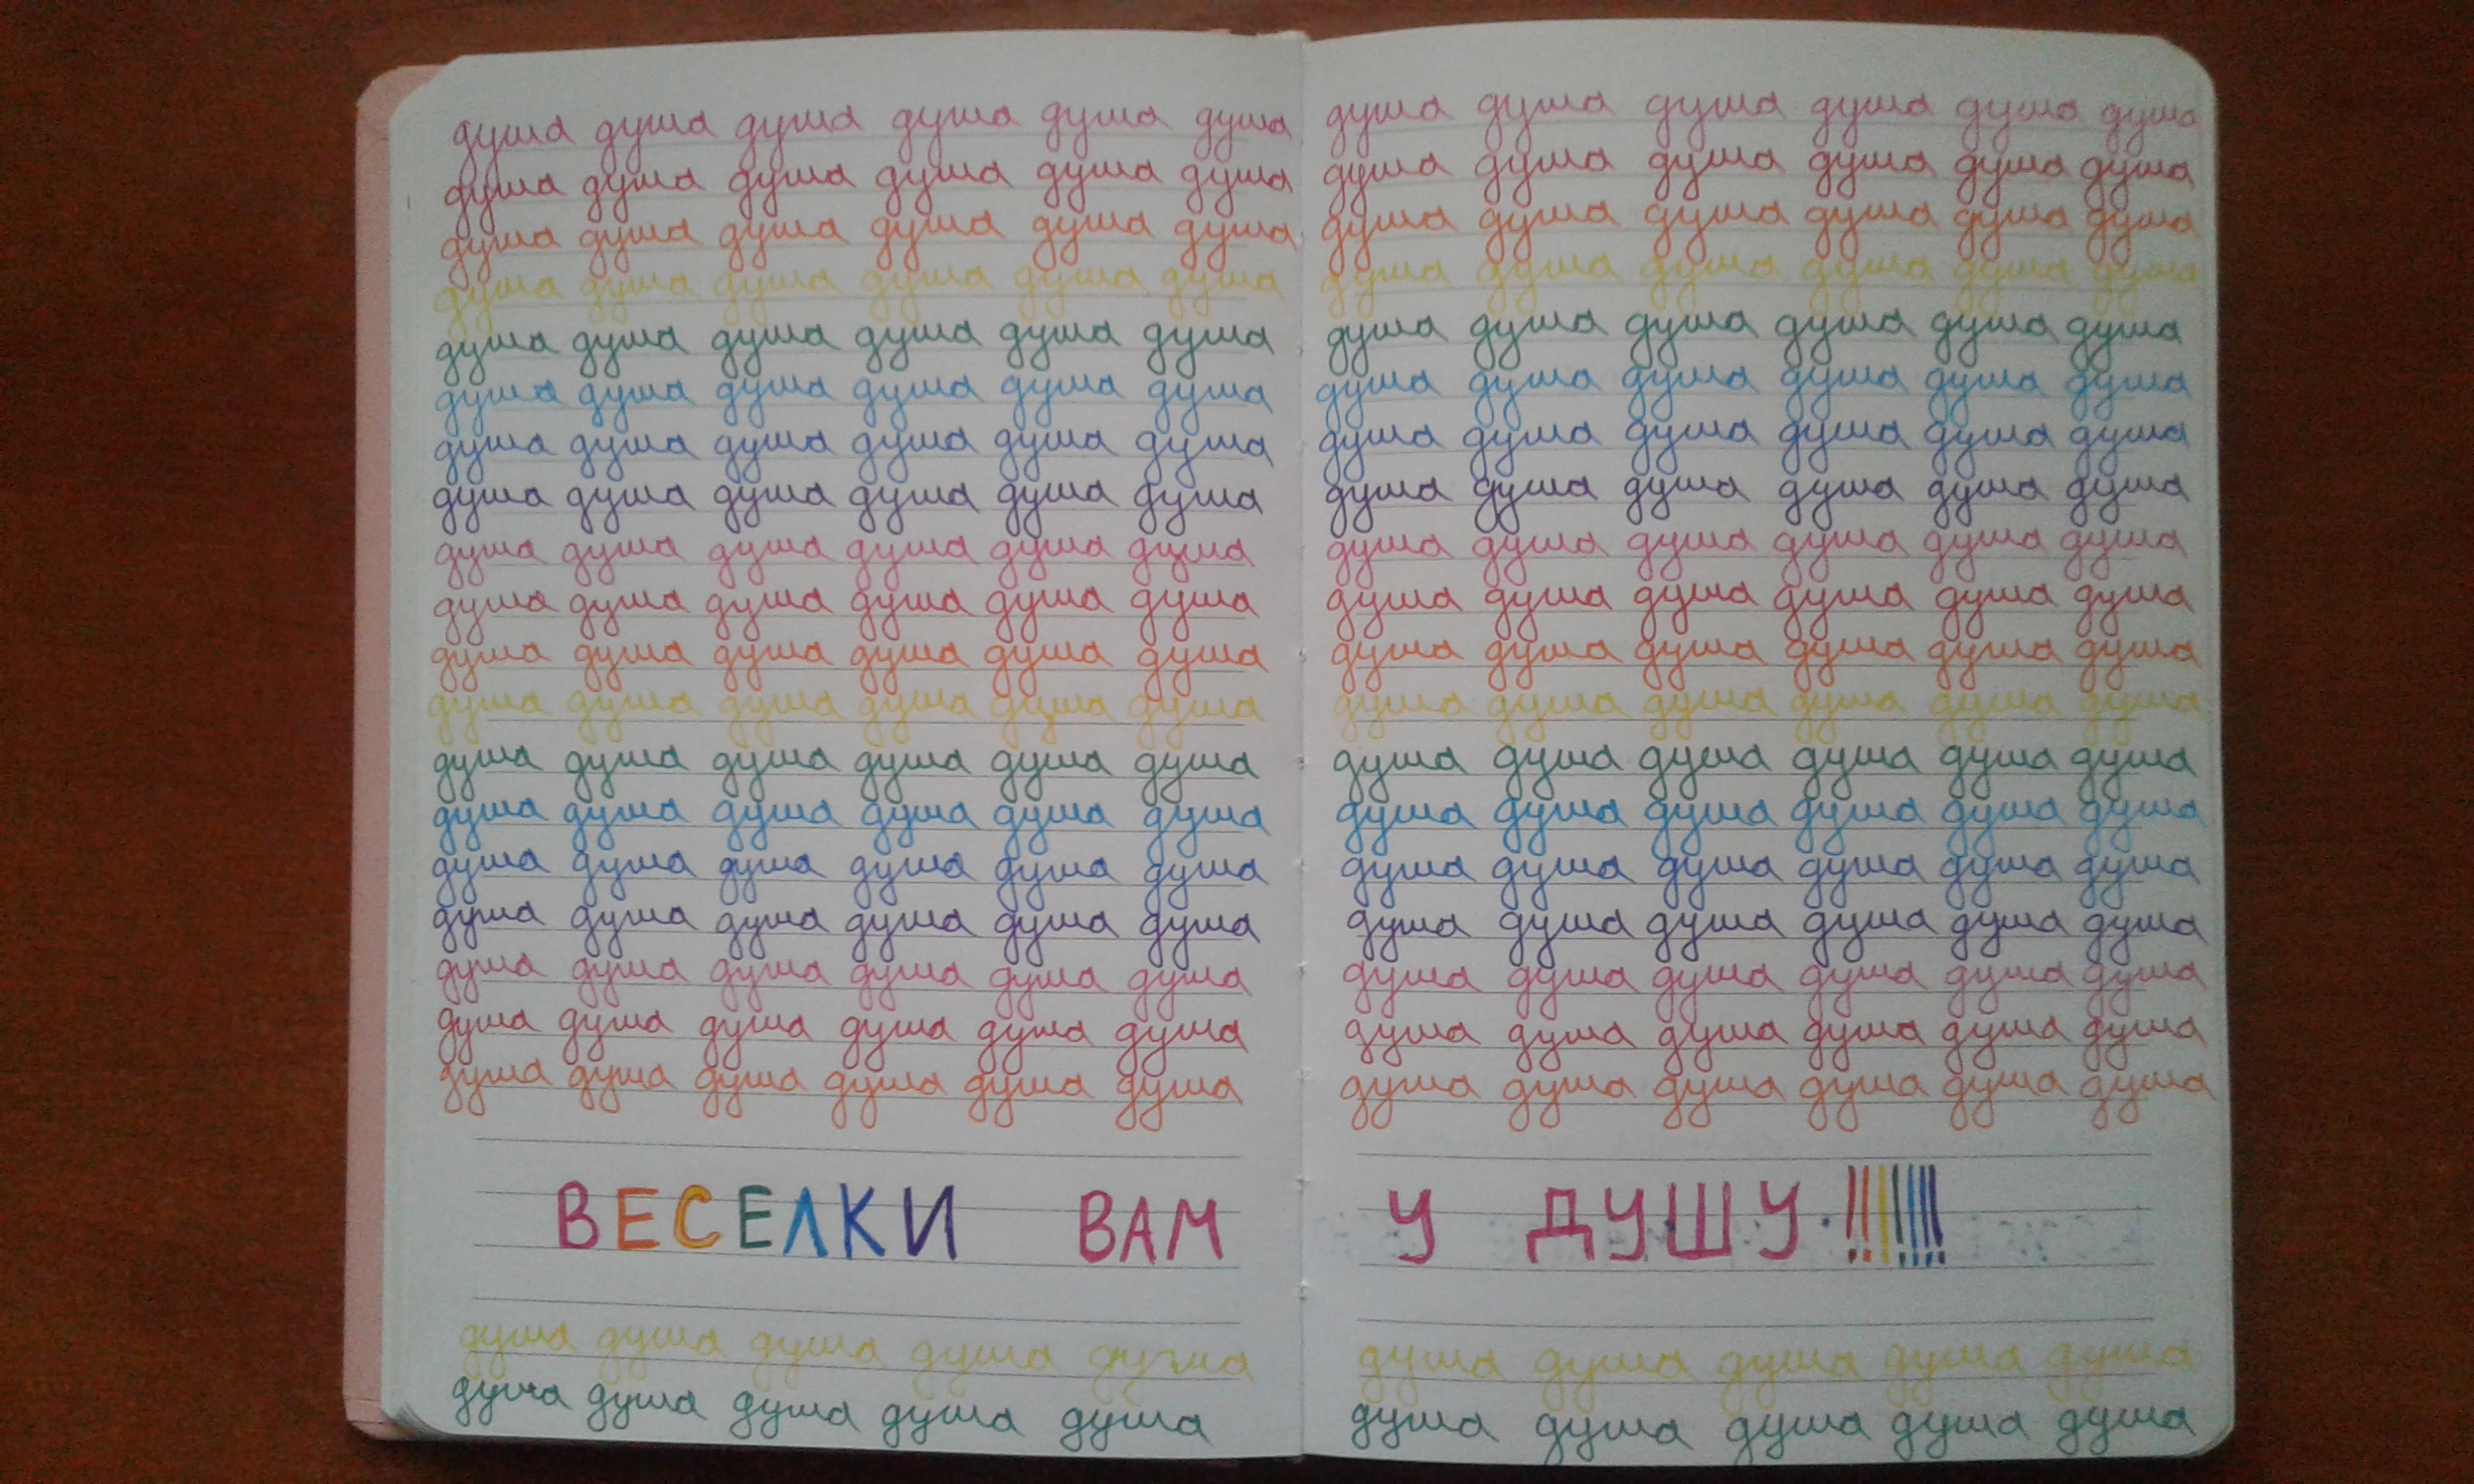 душа душа душа душа душа душа
душа душа душа душа душа душа
душа душа душа душа душа душа
душа душа душа душа душа душа
душа душа душа душа душа душа
душа душа душа душа душа душа
душа душа душа душа душа душа
душа душа душа душа душа душа
душа душа душа душа душа душа
душа душа душа душа душа душа
душа душа душа душа душа душа
душа душа душа душа душа душа
душа душа душа душа душа душа
душа душа душа душа душа душа
душа душа душа душа душа душа
душа душа душа душа душа душа
душа душа душа душа душа душа
душа душа душа душа душа душа
душа душа душа душа душа душа
ВЕСЕЛКИ ВАМ
душа душа душа душа душа
душа душа душа душа душа
душа душа душа душа душа душа
душа душа душа душа душа душа
душа душа душа душа душа душа
душа душа душа душа душа душа
душа душа душа душа душа душа
душа душа душа душа душа душа
душа душа душа душа душа душа
душа душа душа душа душа душа
душа душа душа душа душа душа
душа душа душа душа душа душа
душа душа душа душа душа душа
душа душа душа душа душа душа
душа душа душа душа душа душа
душа душа душа душа душа душа
душа душа душа душа душа душа
душа душа душа душа душа душа
душа душа душа душа душа душа
душа душа душа душа душа душа
душа душа душа душа душа душа
У ДУШУ !!!!!!!
душа душа душа душа душа
душа душа душа душа душа